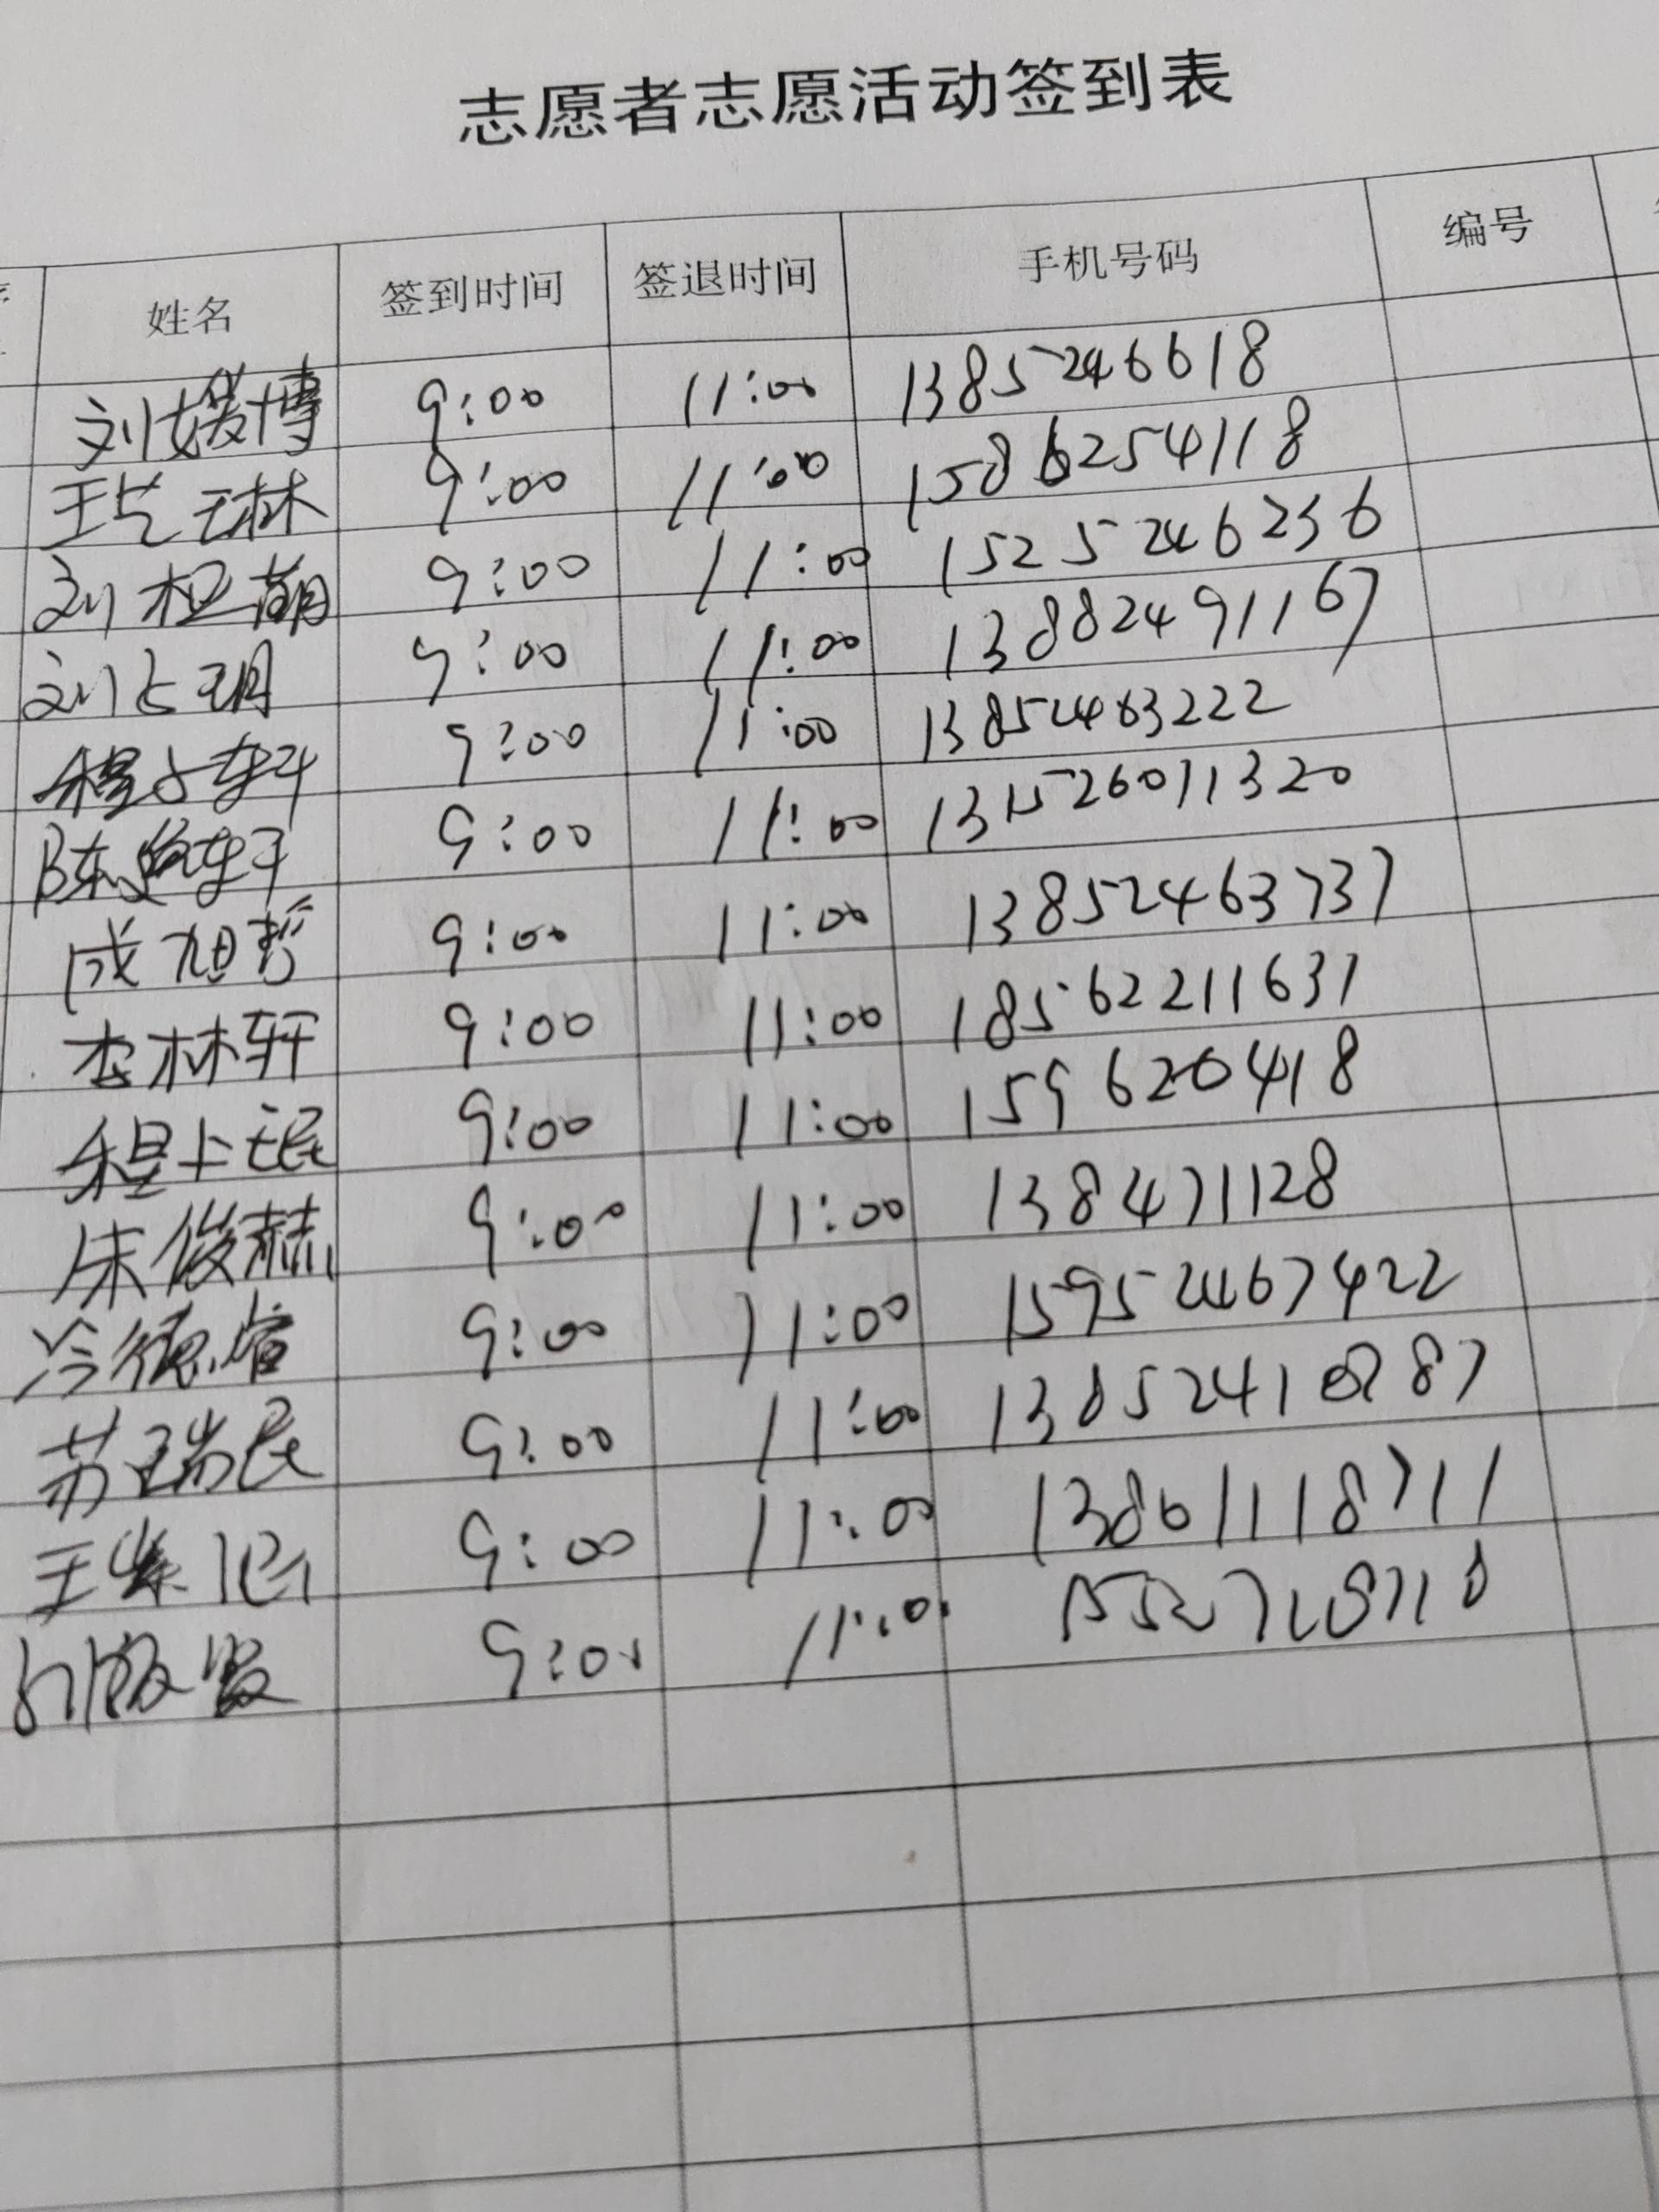 志愿者志愿活动签到表
姓名 签到时间 签退时间 手机号码 编号
刘媛博 9:00 11:00 13852466618
王芝琳 9:00 11:00 15862254118
刘桓萌 9:00 11:00 15252466236
刘占玥 9:00 11:00 13882491167
程子轩 9:00 11:00 13852463222
陈逸轩 9:00 11:00 131526011320
成旭哲 9:00 11:00 13852463737
李林轩 9:00 11:00 18562211631
程上珉 9:00 11:00 1596200418
朱俊赫 9:00 11:00 138471128
冷德睿 9:00 11:00 15952467422
苏瑞民 9:00 11:00 1385241
王 9:00 11:00 13861118711
9:00 11:00